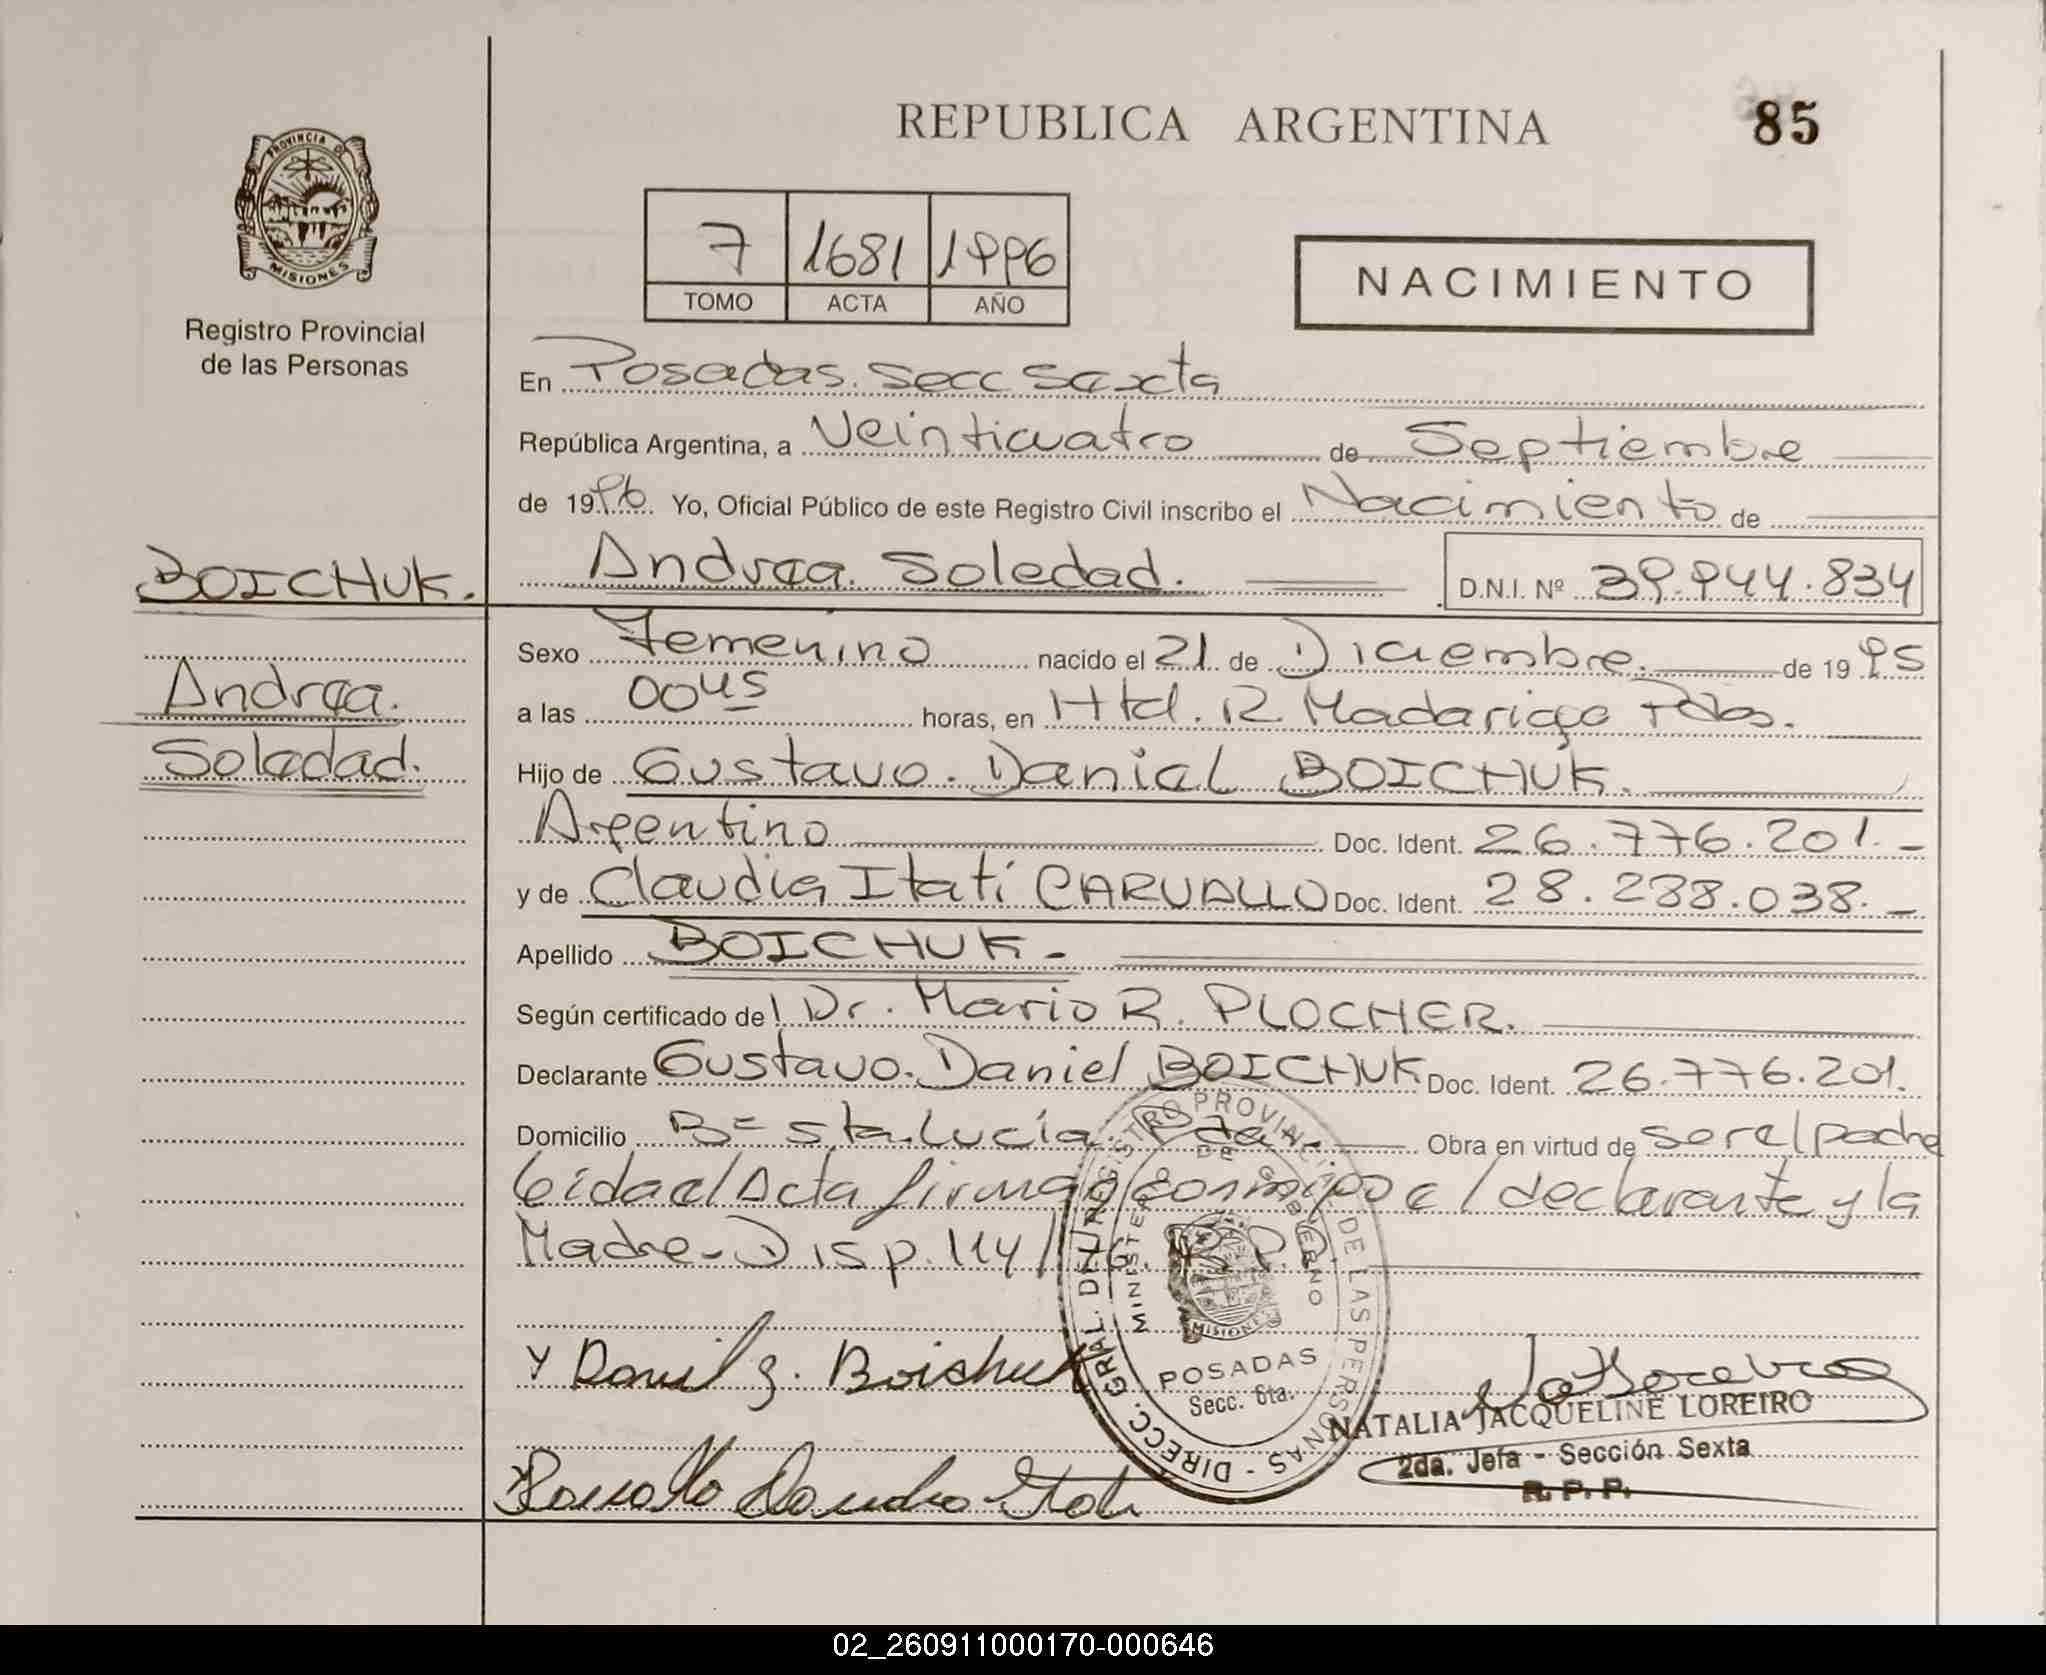 REPUBLICA ARGENTINA
85
PROVINCIA DE
MISIONES
Registro Provincial
de las Personas
7 1681 1996
TOMO ACTA AÑO
NACIMIENTO
En Posadas. Secc Sexta
República Argentina, a Veinticuatro de Septiembre
de 1996 Yo, Oficial Público de este Registro Civil inscribo el Nacimiento de
BOICHUK.
Andrea Soledad. D.N.I. Nº 39.944.834
Andrea.
Soledad.
Sexo Femenino nacido el 21 de Diciembre. de 1995
a las 00 45 horas, en Htal. R. Madariaga Pdas.
Hijo de Gustavo. Daniel BOICHUK.
Argentino Doc. Ident. 26.776.201.-
y de Claudia Itatí CARVALLO Doc. Ident. 28.238.038.-
Apellido BOICHUK.-
Según certificado de Dr. Mario R. PLOCHER.
Declarante Gustavo. Daniel BOICHUK Doc. Ident. 26.776.201.
Domicilio Bº Sta. Lucía. Obra en virtud de ser el padre
Leida el Acta firman conmigo el declarante y la
Madre- Disp. 114/
DIRECC. GRAL. DEL REGISTRO PROVINCIAL DE LAS PERSONAS -
MINISTERIO DE GOBIERNO
MISIONES
POSADAS
Secc. 6ta.
NATALIA JACQUELINE LOREIRO
2da. Jefa - Sección Sexta
R. P. P.
02_260911000170-000646